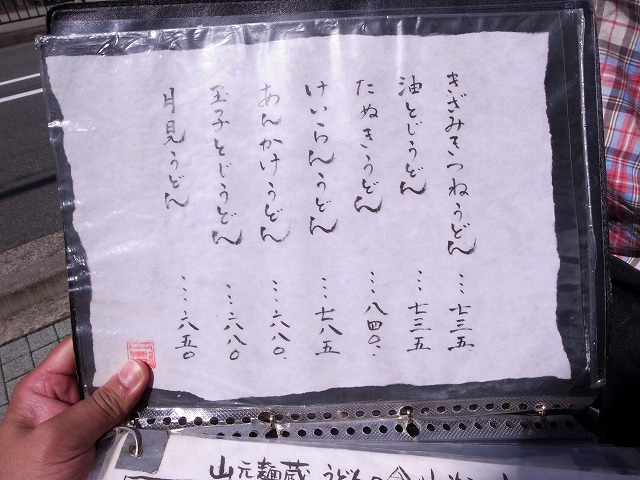 きざみきつねうどん …七三五
油とじうどん …七三五
たぬきうどん …八四〇
けいらんうどん …七八五
あんかけうどん …六八〇
玉子とじうどん …六八〇
月見うどん …六五〇
山元麺蔵 うどんの